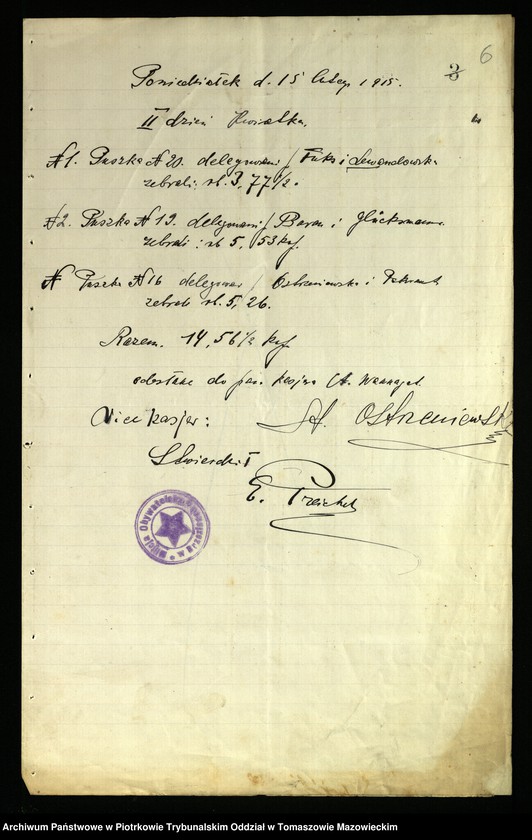 6
3
Poniedziałek d. 15 lutego 1915.
II dzień Kwiatka.
№1. Puszka № 20. delegowani / Fuks i Lewandowska
zebrali: rb. 3, 77 1/2.
№2. Puszka № 19. delegowani / Baran i Glücksmann
zebrali: rb 5, 53 kop.
№ Puszka № 16 delegowani / Ostrzeniewski i
zebrali rb. 5, 26.
Razem. 14, 56 1/2 kop.
oddane do pana kasjera
Vice kasjer: St. Ostrzeniewski
Stwierdził
E. Preichel
Milicja Obywatelska
Archiwum Państwowe w Piotrkowie Trybunalskim Oddział w Tomaszowie Mazowieckim